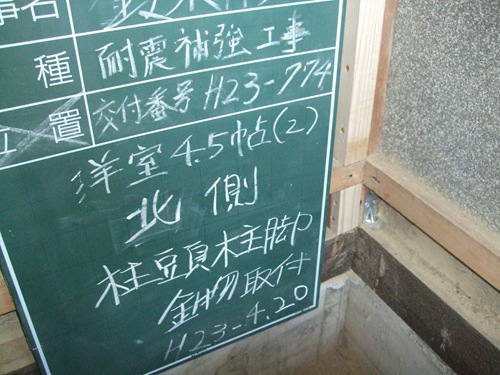 事名
種 耐震補強工事
交付番号 H23-774
位置
洋室4.5帖(2)
北側
柱頭柱脚
金物取付
H23-4.20